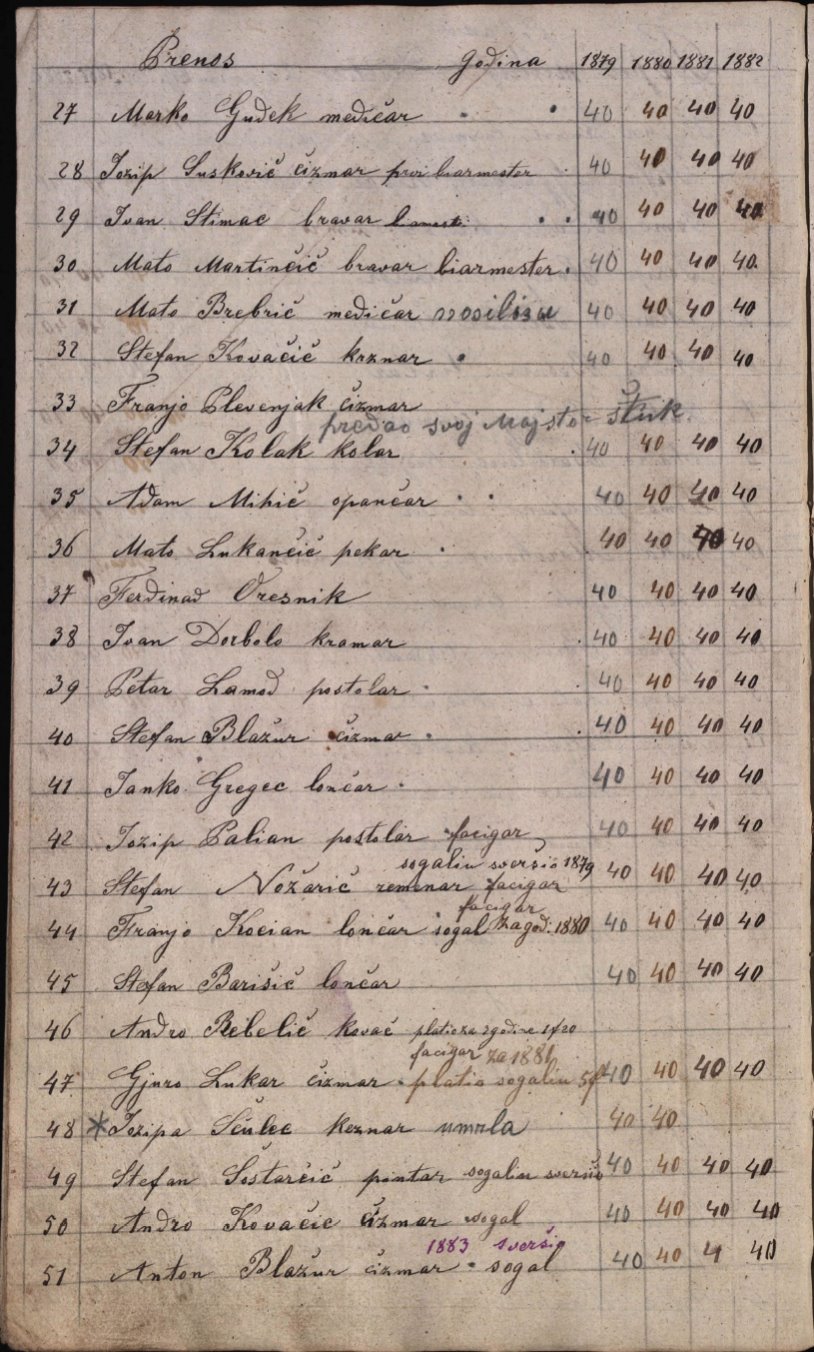 Prenos Godina 1879 1880 1881 1882
27 Marko Gudek medičar 40 40 40 40
28 Jozip Suskovič čizmar prvi biarmester 40 40 40 40
29 Ivan Stimac bravar 40 40 40 40
30 Mato Martinčič bravar biarmester 40 40 40 40
31 Mato Brebrič medičar 40 40 40 40
32 Stefan Kovačič krznar 40 40 40 40
33 Franjo Plevenjak čizmar
predao svoj Majstor štuk
34 Stefan Kolak kolar 40 40 40 40
35 Adam Mihič opančar 40 40 40 40
36 Mato Lukančič pekar 40 40 40 40
37 Ferdinad Oresnik 40 40 40 40
38 Ivan Dorbolo kramar 40 40 40 40
39 Petar Lamod postolar 40 40 40 40
40 Stefan Blažur čizmar 40 40 40 40
41 Janko Gregec lončar 40 40 40 40
42 Jozip Palian postolar facigar 40 40 40 40
sogaliu sveršio 1879
43 Stefan Nožarič remenar facigar 40 40 40 40
facigar
44 Franjo Kocian lončar sogal za god. 1880 40 40 40 40
45 Stefan Barišič lončar 40 40 40 40
46 Andro Rebelič kovač platio za 2 godine 1f 20
facigar za 1881
47 Gjuro Lukar čizmar platio sogaliu 5f 40 40 40 40
48 * Jozipa Ščulec keznar umrla 40 40
49 Stefan Šoštarčič pintar sogaliu sveršio 40 40 40 40
50 Andro Kovačic čizmar sogal 40 40 40 40
1883 sveršio
51 Anton Blažur čizmar sogal 40 40 4 40